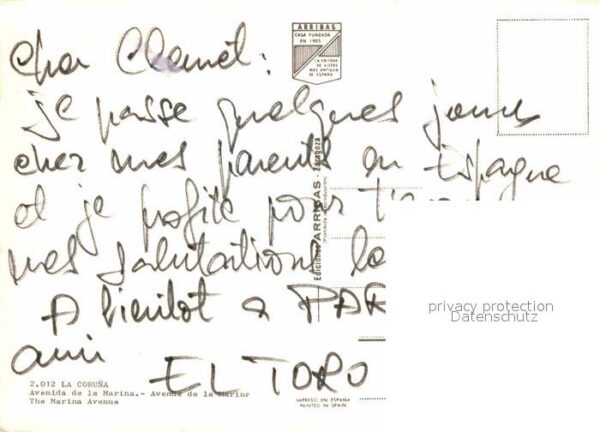 ARRIBAS
CASA FUNDADA
EN 1905
LA EDITORA
DE VISTAS
MAS ANTIGUA
DE ESPAÑA
Cher Clement:
je passe quelques jours
chez mes parents en Espagne
et je profite pour t'
mes salutations
A bientot a PAR
ami
EL TORO
Ediciones ARRIBAS - Zaragoza
privacy protection
Datenschutz
2.012 LA CORUÑA
Avenida de la Marina.- Avenue de la Marine
The Marina Avenue
IMPRESO EN ESPAÑA
PRINTED IN SPAIN